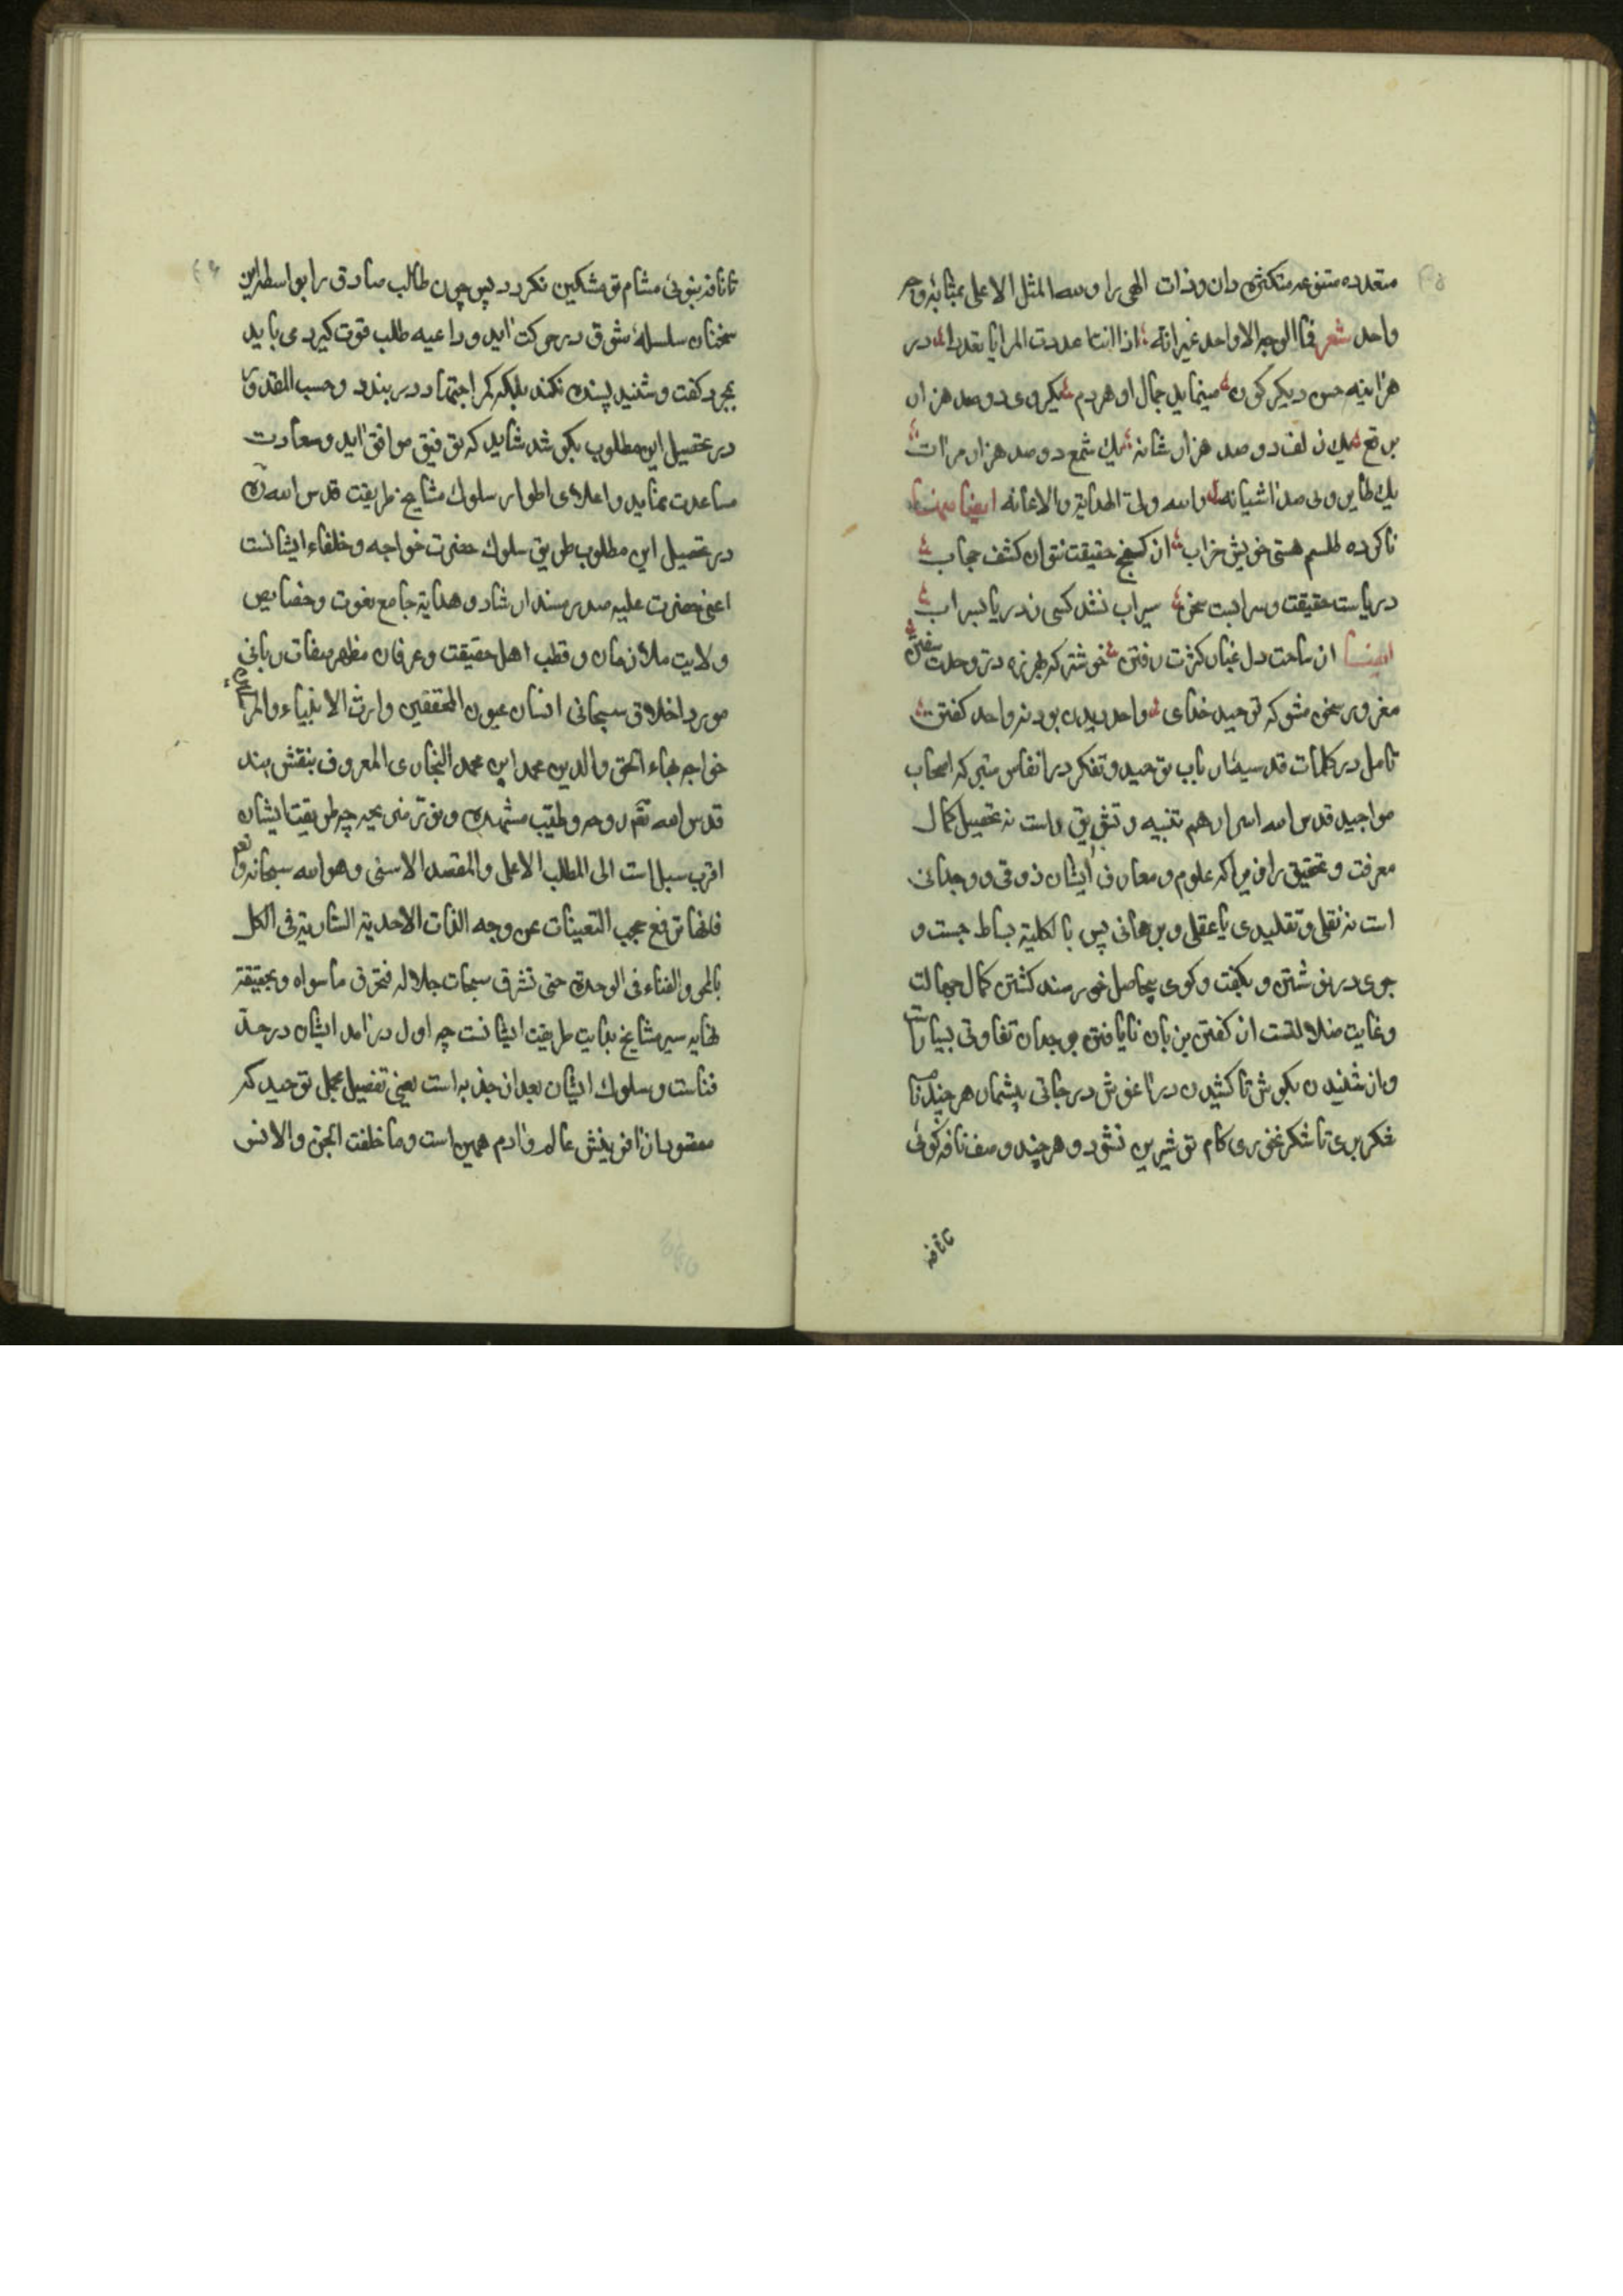 متعدده متنوعه متكثره دان وذات الهی را ولله المثل الاعلی بمثابۀ وجه
واحد شعر فما الوجه الا واحد غیر انّه اذا انتا عددت المرایا تعددا در
هر اینه حسن دیگر کون مینماید جمال او هر دم یکروی دو صد هزار
برقع یک زلف دو صد هزار شانه یک شمع دو صد هزار مرآت
یک طایر وی صد اشیانه والله ولیّ الهدایة والاعانه ایضا منها
ناکرده طلسم هستی خویش خراب از گنج حقیقت نتوان کشف حجاب
دریاست حقیقت و سرابست سخن سیراب نشد کسی ز دریا بسراب
ایضا از ساحت دل غبار کثرت رفتن خوشتر که بهرزه درّ وحدت سفتن
مغرور سخن مشو که توحید خدای واحد دیدن بود نه واحد گفتن
تامل در کلمات قدسیهٔ ارباب توحید و تفکر در انفاس متبرکه اصحاب
مواجید قدس الله اسرارهم تنبیه و تشویق راست نه تحصیل کمال
معرفت و تحقیق را زیرا که علوم و معارف ایشان ذوقی و وجدانی
است نه نقلی و تقلیدی یا عقلی و برهانی پس بالکلیة بساط جست و
جوی درنوشتن و بگفت و گوی بیحاصل خورسند گشتن کمال جهالت
و غایت ضلالتست از گفتن بزبان تا یافتن بوجدان تفاوتی بسیارست
و از شنیدن بگوش تا کشیدن در آغوش درجاتی بیشمار هر چند نام
شکر بری تا شکر نخوری کام تو شیرین نشود و هر چند وصف نافه گوئی
تا نافه
تا نافه نبوئی مشام تو مشکین نگردد پس چون طالب صادق را بواسطه این
سخنان سلسلهٔ شوق در حرکت آید و داعیه طلب قوت گیرد می باید
بمجرد گفت و شنید پسنده نکند بلکه کمر اجتهاد در بندد و حسب المقدور
در تحصیل این مطلوب بکوشد شاید که توفیق موافق آید و سعادت
مساعدت نماید و اعلای اطوار سلوک مشایخ طریقت قدس الله
در تحصیل این مطلوب طریق سلوک حضرت خواجه و خلفاء ایشانست
اعنی حضرت علیه صدر مسند ارشاد و هدایة جامع نعوت و خصایص
ولایت ملاذ زمان و قطب اهل حقیقت و عرفان مظهر صفات ربانی
مورد اخلاق سبحانی انسان عیون المحققین وارث الانبیاء والمرسلین
خواجه بهاء الحق والدین محمد ابن محمد البخاری المعروف بنقش بند
قدس الله تعم روحه وطیّب مشهده ونوّر ضریحه چه طریقت ایشان
اقرب سبل است الی المطلب الاعلی والمقصد الاسنی وهو الله سبحانه وتعم
فانها ترفع حجب التعینات عن وجه الذات الاحدیة الساریة فی الکل
بالمحو والفناء فی الوحدة حتی تشرق سبحات جلاله فتحرق ماسواه وبحقیقة
نهایه سیر مشایخ بدایت طریقت ایشانست چه اول درآمد ایشان در حدّ
فناست و سلوک ایشان بعد از جذبه است یعنی تفصیل مجمل توحید که
مقصود از آفرینش عالم و آدم همین است وما خلقت الجن والانس